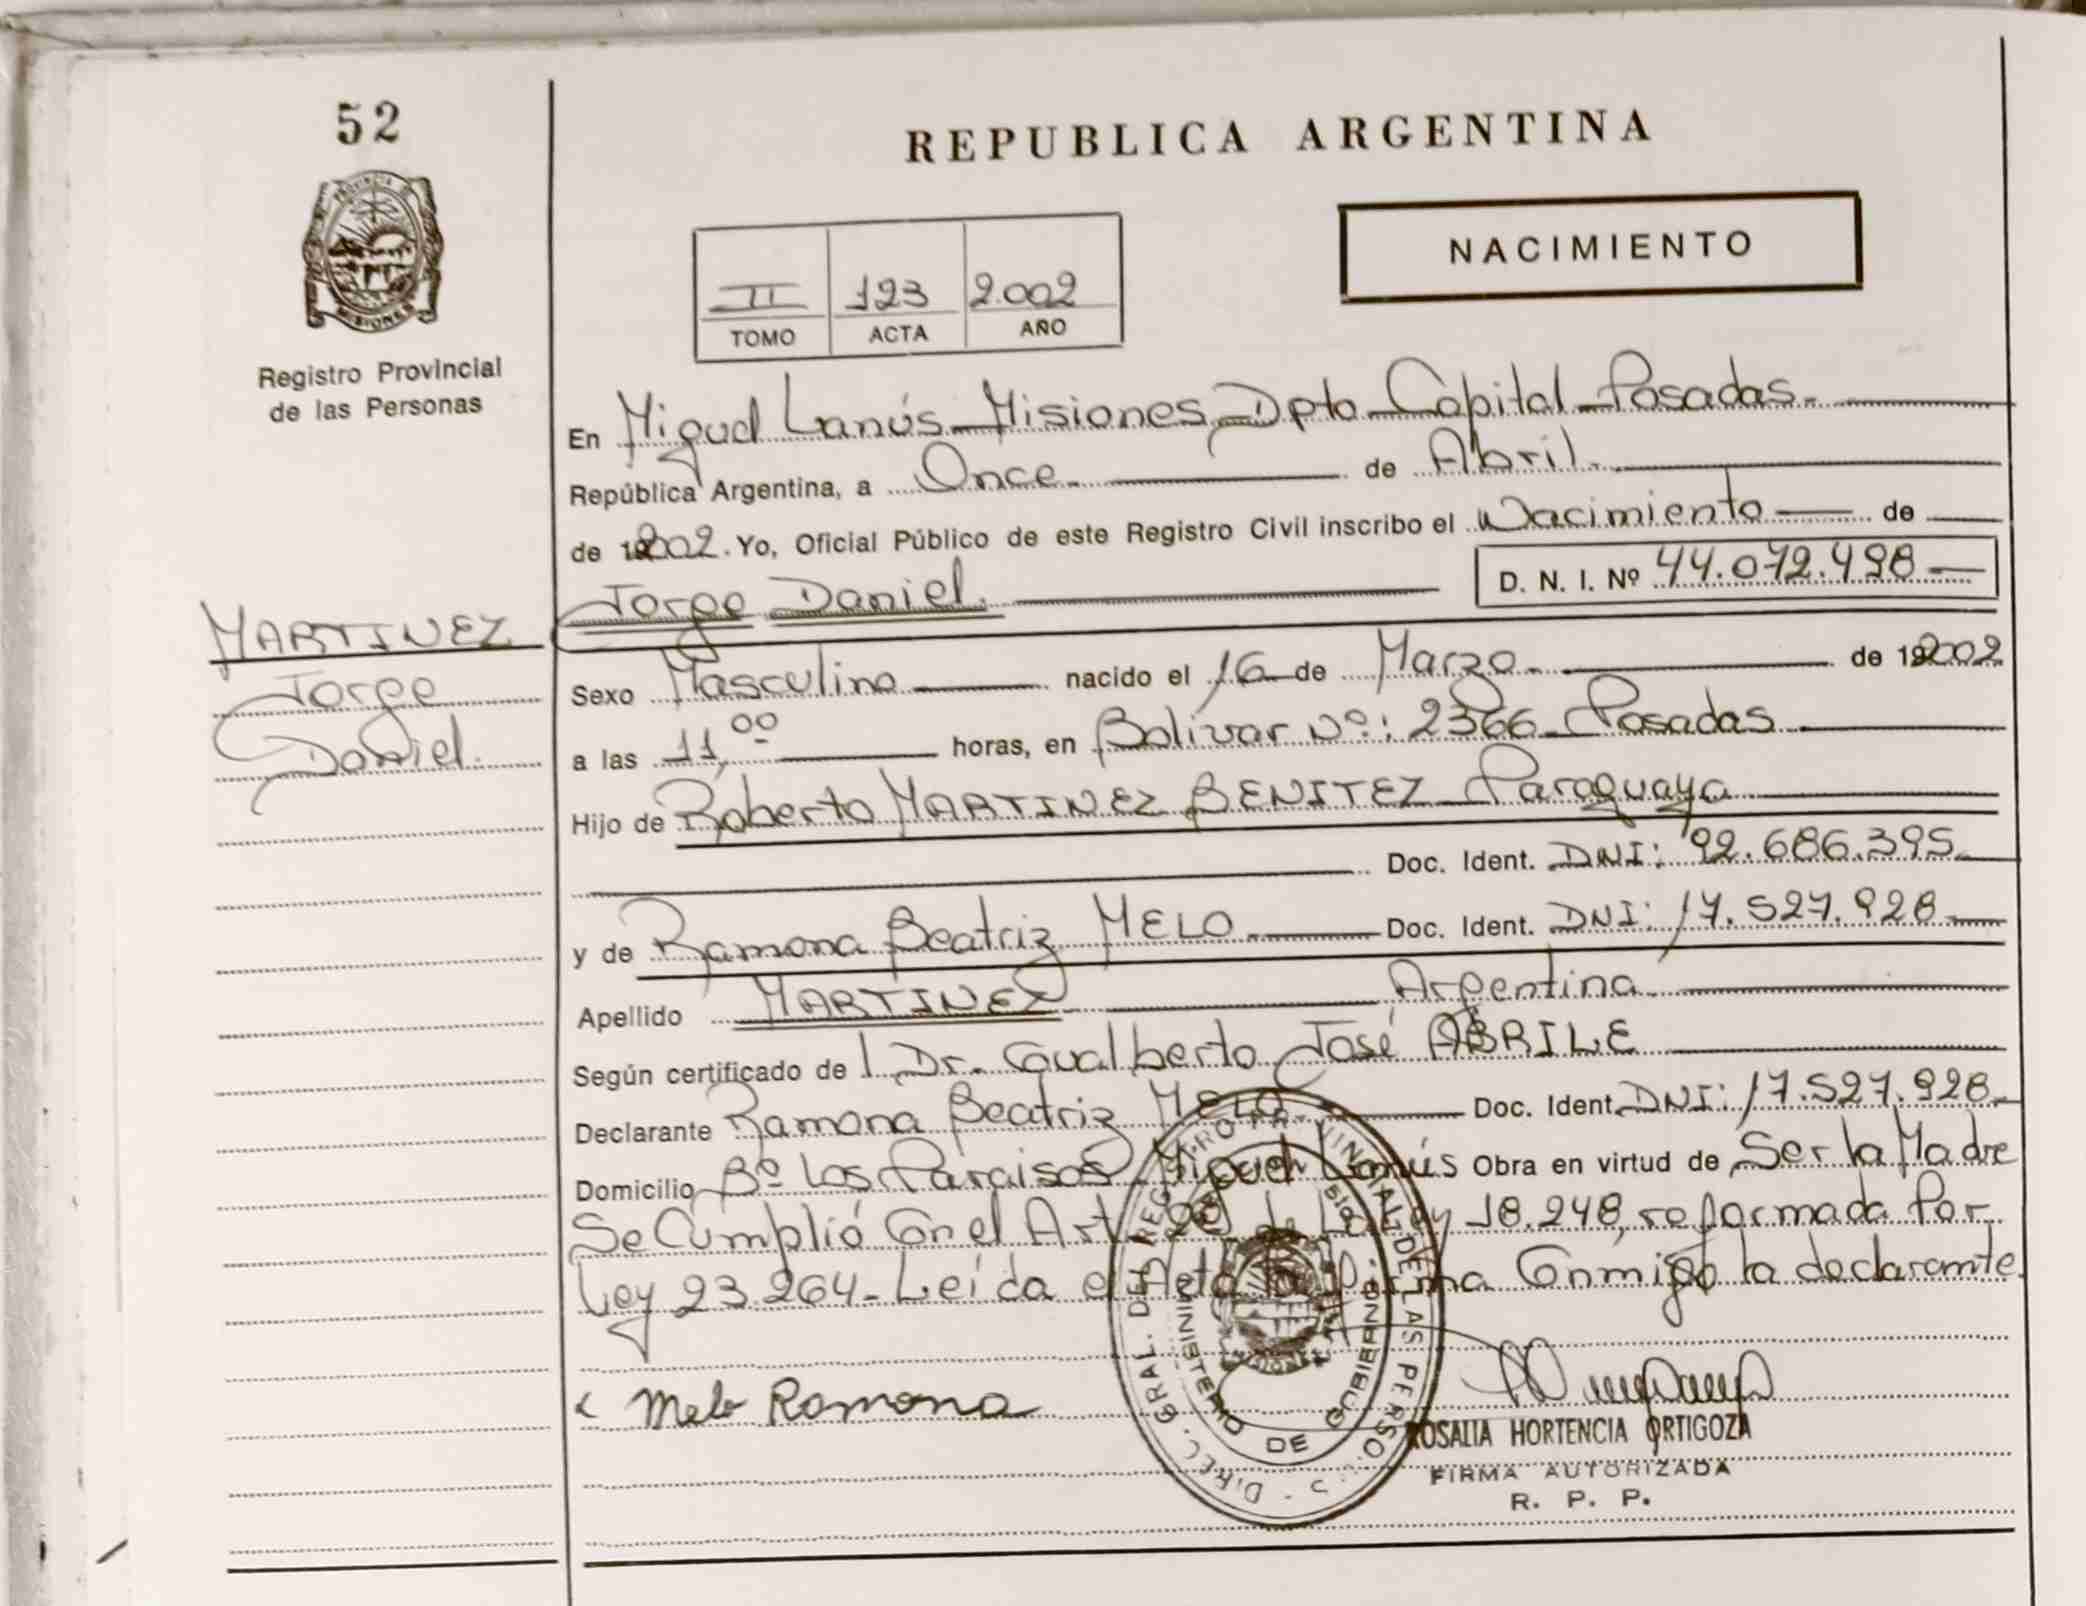 52
REPUBLICA ARGENTINA
NACIMIENTO
II 123 2.002
TOMO ACTA AÑO
PROVINCIA DE
MISIONES
Registro Provincial
de las Personas
En Miguel Lanús Misiones, Dpto Capital Posadas.
República Argentina, a Once de Abril.
de 2002. Yo, Oficial Público de este Registro Civil inscribo el Nacimiento de
Jorge Daniel. D. N. I. Nº 44.072.498
MARTINEZ
Jorge
Daniel.
Sexo Masculino nacido el 16 de Marzo de 2002
a las 11,00 horas, en Bolívar Nº: 2366 Posadas
Hijo de Roberto MARTINEZ BENITEZ Paraguaya
Doc. Ident. DNI: 92.686.395
y de Ramona Beatriz MELO Doc. Ident. DNI: 17.527.928
Apellido MARTINEZ Argentina
Según certificado de l Dr. Gualberto José ABRILE
Declarante Ramona Beatriz MELO Doc. Ident. DNI: 17.527.928
Domicilio Bº Los Paraisos Miguel Lanús Obra en virtud de Ser la Madre
Se Cumplió Con el Art. Ley 18.248, reformada Por
Ley 23.264. Leída el Acta la firma Conmigo la declarante.
Melo Ramona
DIREC. GRAL. DEL REGISTRO PROVINCIAL DE LAS PERSONAS
MINISTERIO DE GOBIERNO
ROSALIA HORTENCIA ORTIGOZA
FIRMA AUTORIZADA
R. P. P.